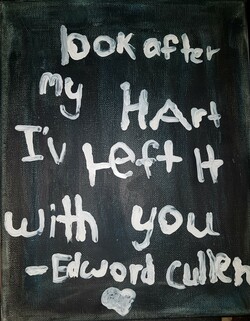 look after
my HArt
I'v Left It
with you
- Edword Cullen